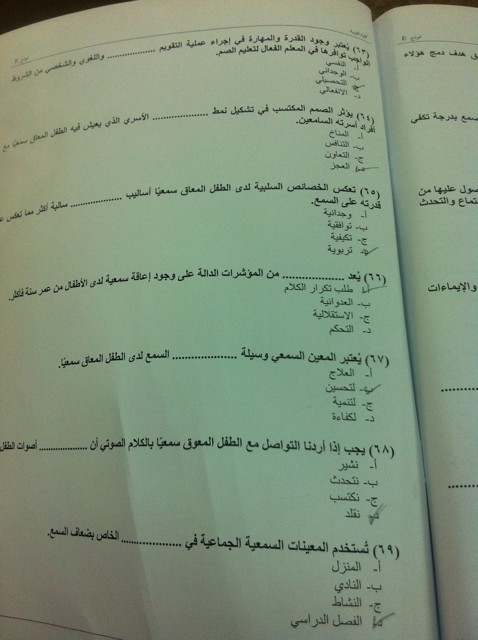 (٦٣) يُعتبر وجود القدرة والمهارة في إجراء عملية التقويم .................. واللغوي والشخصي من الشروط
الواجب توافرها في المعلم الفعال لتعليم الصم.
أ- النفسي
ب- الوجداني
ج- التحصيلي
د- الانفعالي
(٦٤) يؤثر الصمم المكتسب في تشكيل نمط .................. الأسري الذي يعيش فيه الطفل المعاق سمعيًا مع
أفراد أسرته السامعين.
أ- المناخ
ب- التنافس
ج- التعاون
د- العجز
(٦٥) تعكس الخصائص السلبية لدى الطفل المعاق سمعيًا أساليب .................. سالبة أكثر مما تعكس
قدرته على السمع.
أ- وجدانية
ب- توافقية
ج- تكيفية
د- تربوية
(٦٦) يُعد .................. من المؤشرات الدالة على وجود إعاقة سمعية لدى الأطفال من عمر سنة فأكثر.
أ- طلب تكرار الكلام
ب- العدوانية
ج- الاستقلالية
د- التحكم
(٦٧) يُعتبر المعين السمعي وسيلة .................. السمع لدى الطفل المعاق سمعيًا.
أ- العلاج
ب- لتحسين
ج- لتنمية
د- لكفاءة
(٦٨) يجب إذا أردنا التواصل مع الطفل المعوق سمعيًا بالكلام الصوتي أن .................. أصوات الطفل
أ- نشير
ب- نتحدث
ج- نكتسب
د- نقلد
(٦٩) تُستخدم المعينات السمعية الجماعية في .................. الخاص بضعاف السمع.
أ- المنزل
ب- النادي
ج- النشاط
د- الفصل الدراسي
ق هدف دمج هؤلاء
سمع بدرجة تكفي
صول عليها من
تماع والتحدث
والإيماءات